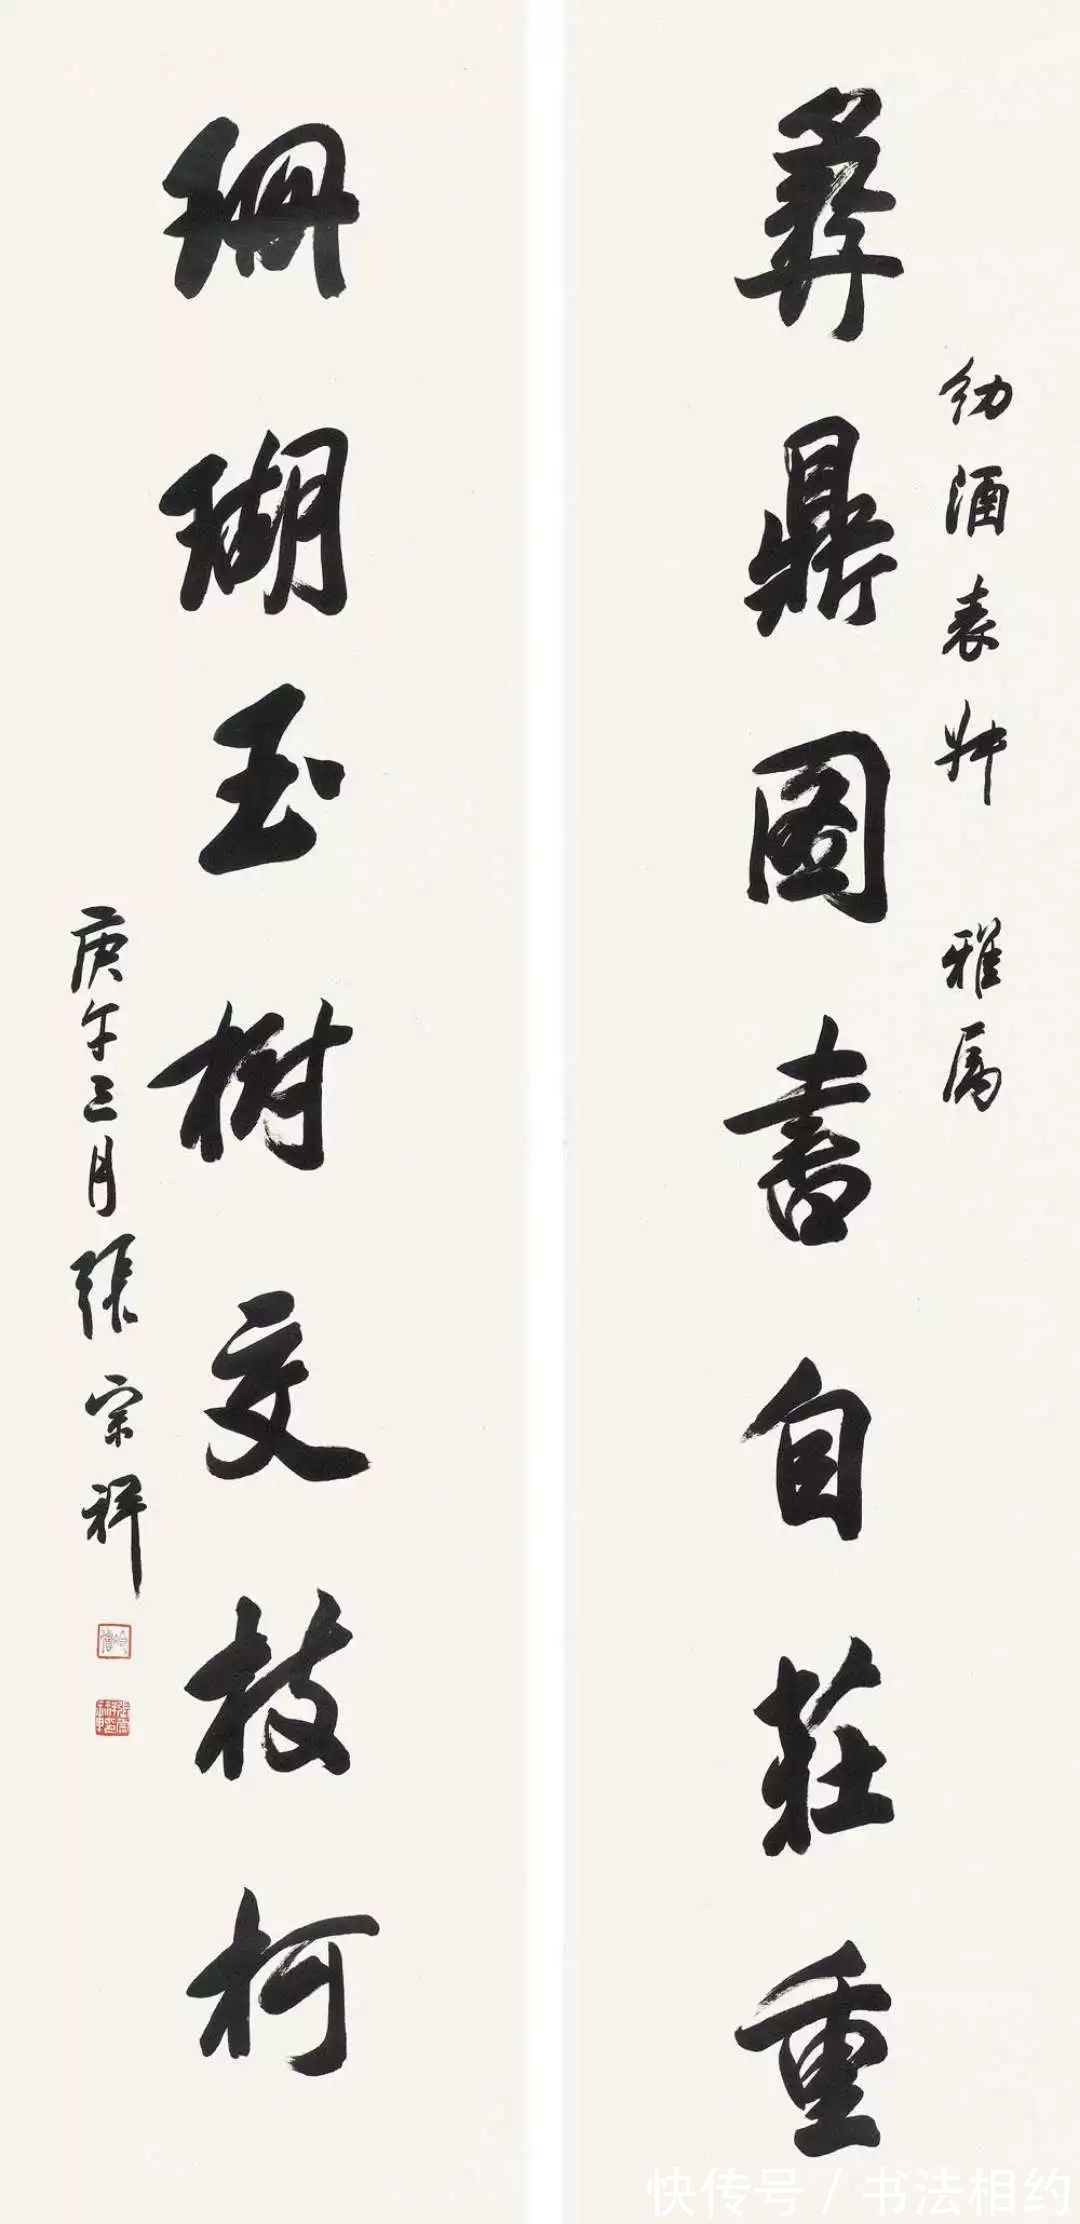 幼酒表姊 雅属
彝鼎图书自莊重
珊瑚玉樹交枝柯
庚午三月張宗祥
快传号 / 书法相约